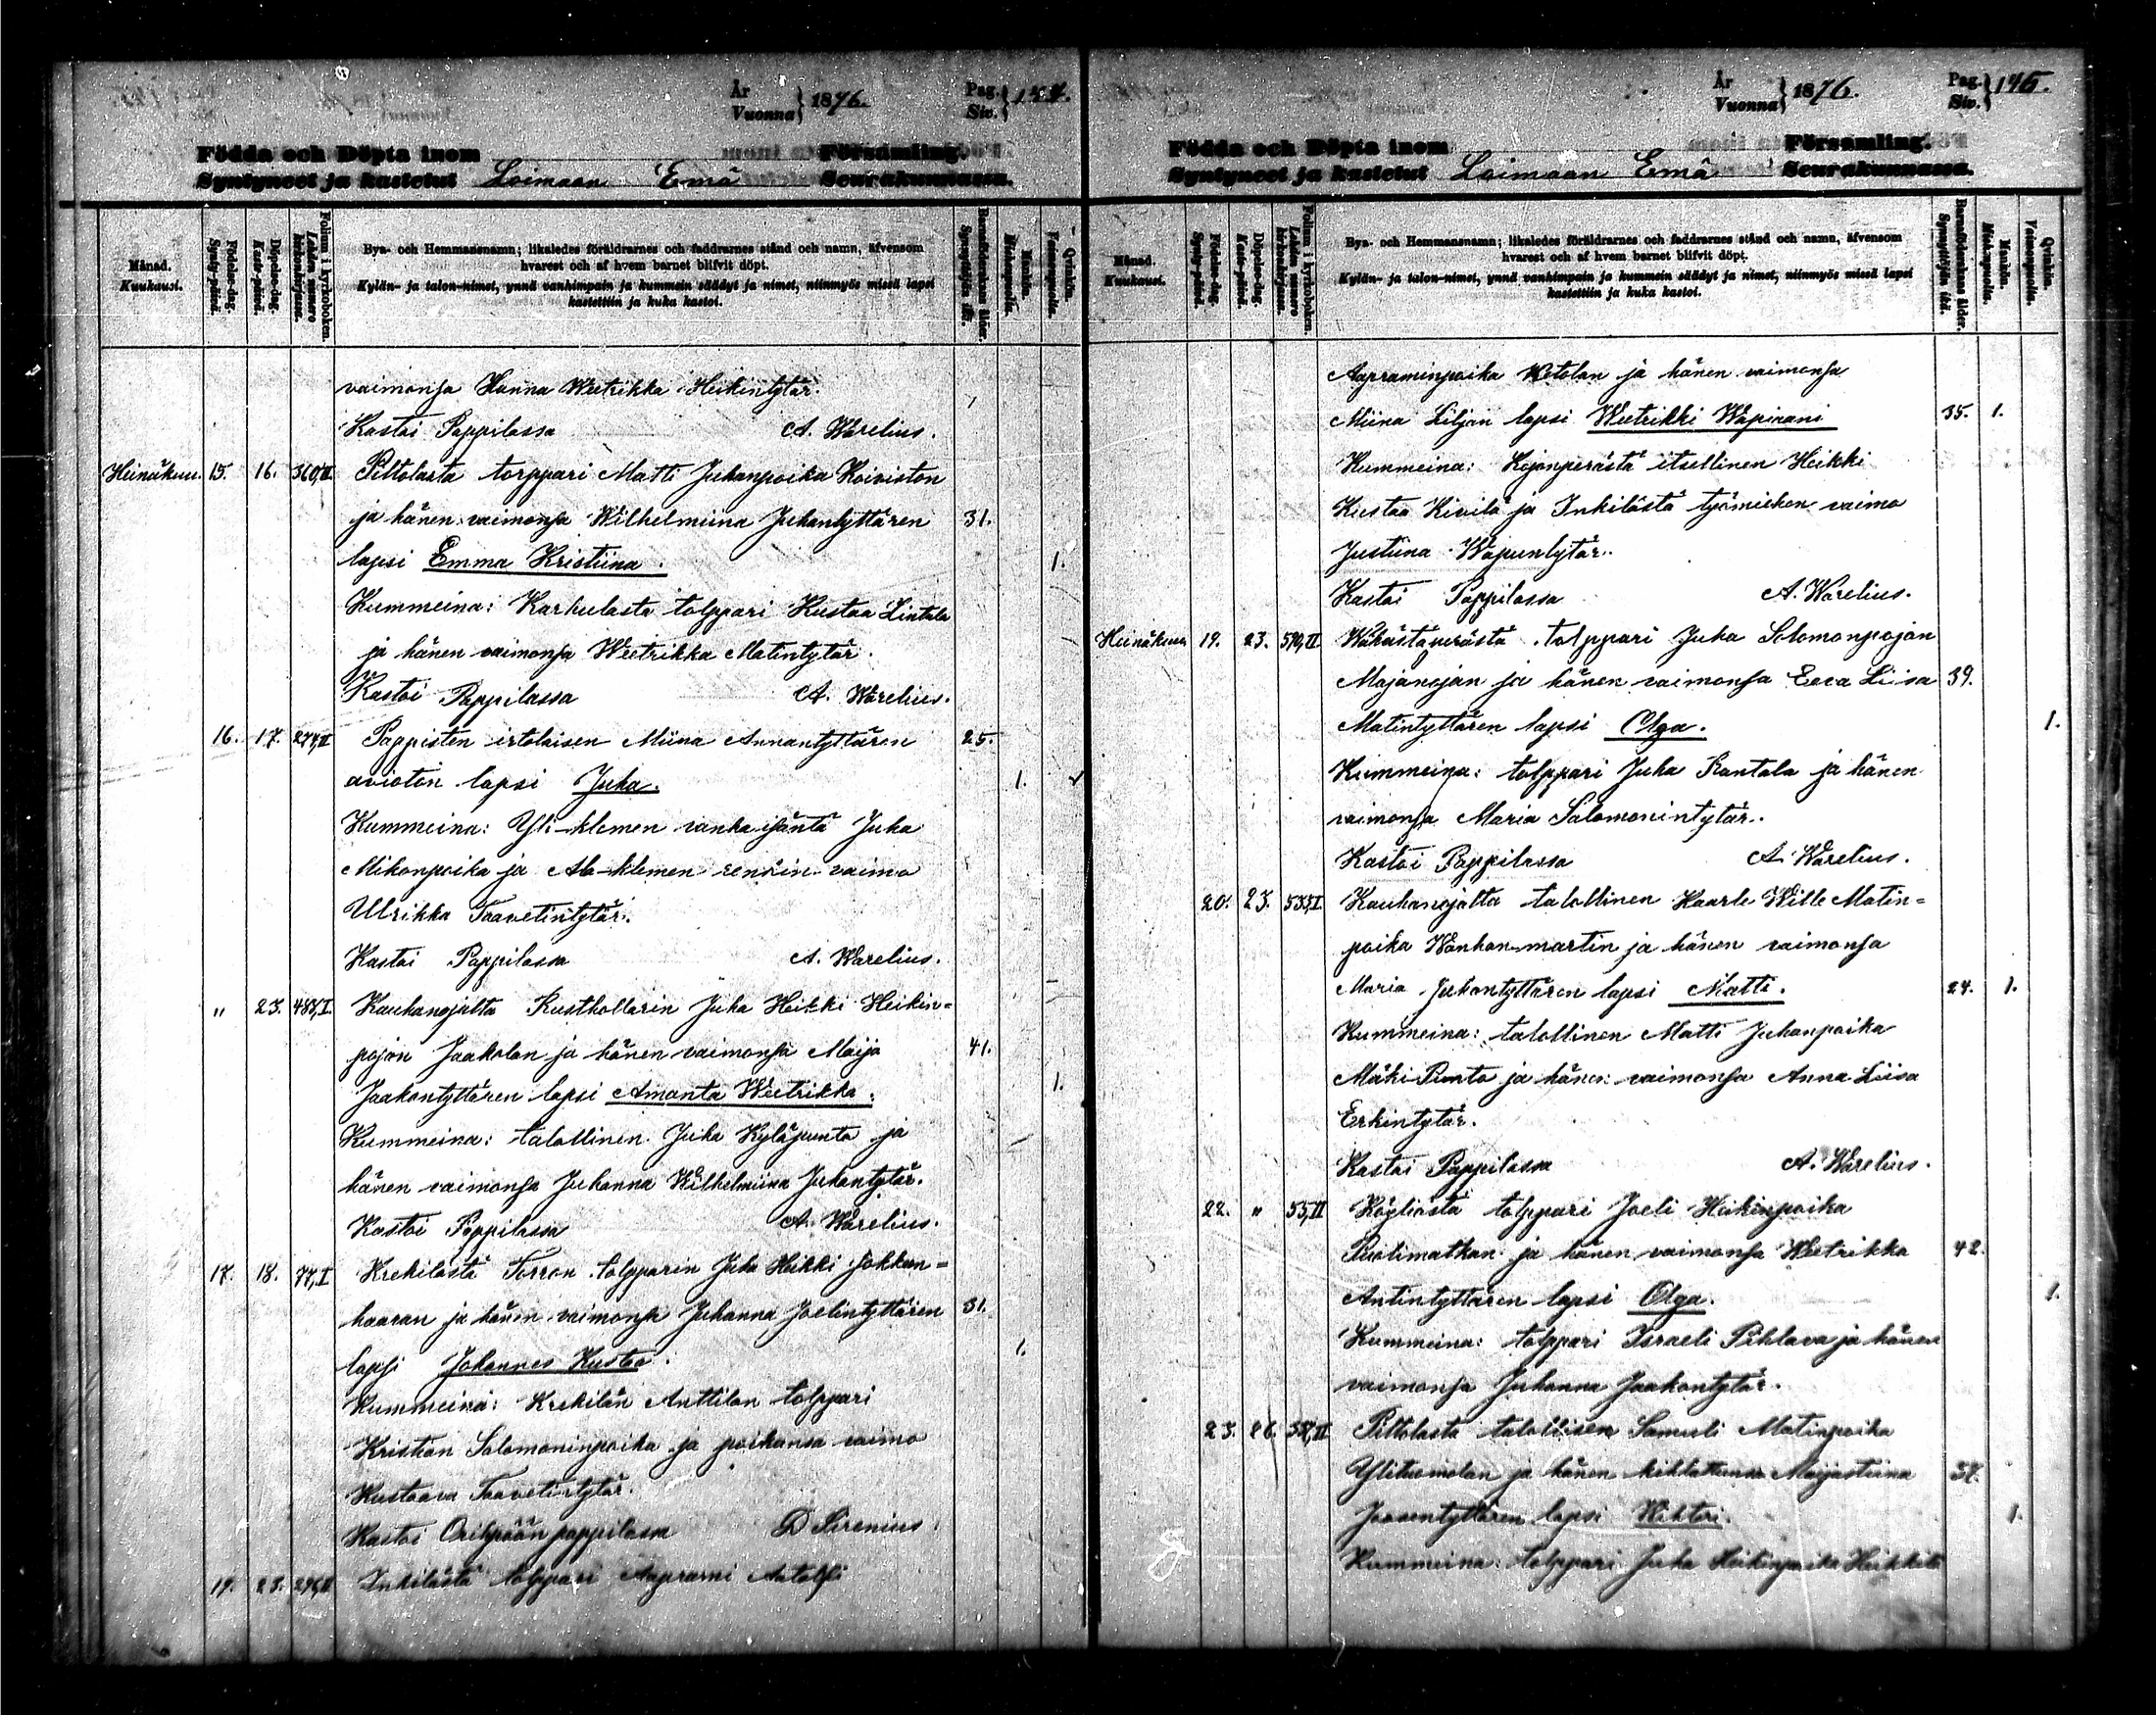 År
Vuonna } 1876.
Pag.
Siv. } 144.
Födda och Döpta inom
Syntyneet ja kastetut Loimaan Emä Församling.
Seurakunnassa.
Månad.
Kuukausi.
Födelse-dag.
Synty-päivä.
Döpelse-dag.
Kaste-päivä.
Folium i kyrkoboken.
Lehden numero kirkonkirjassa.
Bya- och Hemmansnamn; likaledes föräldrarnes och faddrarnes stånd och namn, äfvensom
hvarest och af hvem barnet blifvit döpt.
Kylän- ja talon-nimet, ynnä vanhimpain ja kummein säädyt ja nimet, niinmyös missä lapsi
kastettiin ja kuka kastoi.
Barnföderskans ålder.
Synnyttäjän ikä.
Mankön.
Miehenpuolia.
Qvinkön.
Vaimonpuolia.
vaimonsa Hanna Weetrikka Heikintytär.
Kastoi Pappilassa A. Warelius.
Heinäkuu. 15. 16. 360,II. Piltolasta torppari Matti Juhanpoika Koiviston
ja hänen vaimonsa Wilhelmiina Juhantyttären 31.
lapsi Emma Kristiina. 1.
Kummeina: Karhulasta torppari Kustaa Lintala
ja hänen vaimonsa Weetrikka Matintytär.
Kastoi Pappilassa A. Warelius.
16. 17. 274,II Pappisten irtolaisen Miina Annantyttären 25.
avioton lapsi Juha. 1.
Kummeina: Yli-klemen vanha isäntä Juha
Mikonpoika ja Ala-klemen rengin vaimo
Ulrikka Taavetintytär.
Kastoi Pappilassa A. Warelius.
" 23. 488,I. Kauhanojalta Rusthollarin Juha Heikki Heikin=
pojan Jaakolan ja hänen vaimonsa Maija 41.
Jaakontyttären lapsi Amanta Weetrikka. 1.
Kummeina: talollinen Juha Kyläpunta ja
hänen vaimonsa Juhanna Wilhelmiina Juhantytär.
Kastoi Pappilassa A. Warelius.
17. 18. 77,I Krekilästä Torron torpparin Juha Heikki Jokkan=
haaran ja hänen vaimonsa Juhanna Joelintyttären 31.
lapsi Johannes Kustaa. 1.
Kummeina: Krekilän Anttilan torppari
Kristian Salomoninpoika ja poikansa vaimo
Kustaava Taavetintytär.
Kastoi Oripään pappilassa D Sirenius.
19. 23. Inkilästä torppari Aaprami Aatolfi
År
Vuonna } 1876.
Pag.
Siv. } 145.
Födda och Döpta inom
Syntyneet ja kastetut Loimaan Emä Församling.
Seurakunnassa.
Månad.
Kuukausi.
Födelse-dag.
Synty-päivä.
Döpelse-dag.
Kaste-päivä.
Folium i kyrkoboken.
Lehden numero kirkonkirjassa.
Bya- och Hemmansnamn; likaledes föräldrarnes och faddrarnes stånd och namn, äfvensom
hvarest och af hvem barnet blifvit döpt.
Kylän- ja talon-nimet, ynnä vanhimpain ja kummein säädyt ja nimet, niinmyös missä lapsi
kastettiin ja kuka kastoi.
Barnföderskans ålder.
Synnyttäjän ikä.
Mankön.
Miehenpuolia.
Qvinkön.
Vaimonpuolia.
Aapraminpoika Ketolan ja hänen vaimonsa
Miina Liljan lapsi Weetrikki Wapiaani 35. 1.
Kummeina: Kojonperästä itsellinen Heikki
Kustaa Kivilä ja Inkilästä työmiehen vaimo
Justiina Wapuntytär.
Kastoi Pappilassa A. Warelius.
Heinäkuu 19. 23. torppari Juha Solomonpojan
Majanojan ja hänen vaimonsa Eeva Liisa 39.
Matintyttären lapsi Olga. 1.
Kummeina: torppari Juha Rantala ja hänen
vaimonsa Maria Salomonintytär.
Kastoi Pappilassa A. Warelius.
20. 23. 533,I. Kauhanojalta talollinen Kaarle Wille Matin=
poika Wanhan-martin ja hänen vaimonsa
Maria Juhantyttären lapsi Matti. 24. 1.
Kummeina: talollinen Matti Juhanpoika
Mäki Punta ja hänen vaimonsa Anna Liisa
Erkintytär.
Kastoi Pappilassa A. Warelius.
22. " 55,II Köyliöstä torppari Joeli Heikinpoika
Puolimatkan ja hänen vaimonsa Weetrikka 42.
Antintyttären lapsi Olga. 1.
Kummeina: torppari Israeli Pihlava ja hänen
vaimonsa Juhanna Jaakontytär.
23. 26. Piltolasta talollisen Samuli Matinpoika
Ylituomolan ja hänen kihlattunsa Maijastiina
Joosentyttären lapsi Wihtori. 1.
Kummeina: torppari Juha Heikinpoika Heikkilä